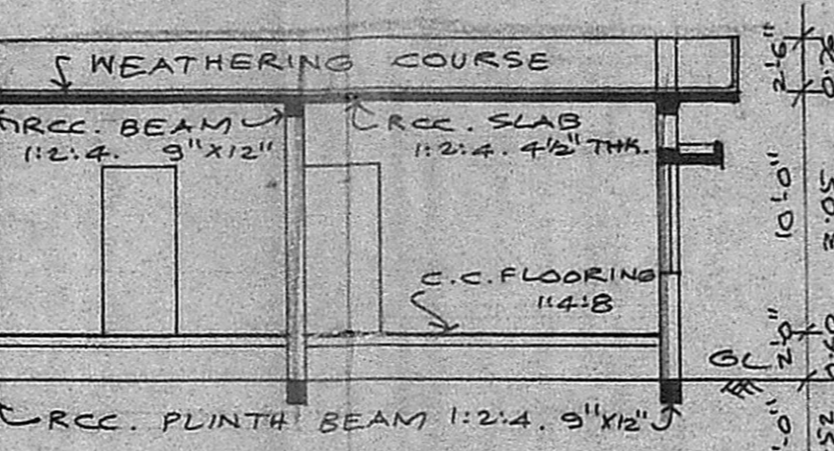 WEATHERING COURSE
RCC. BEAM
1:2:4. 9"X12"
RCC. SLAB
1:2:4. 4½" THK.
C.C. FLOORING
1:4:8
GL
RCC. PLINTH BEAM 1:2:4. 9"X12"
2'-6"
10'-0"
2'-0"